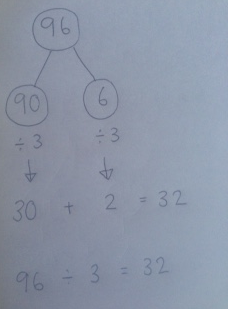 96
90 6
÷ 3 ÷ 3
30 + 2 = 32
96 ÷ 3 = 32